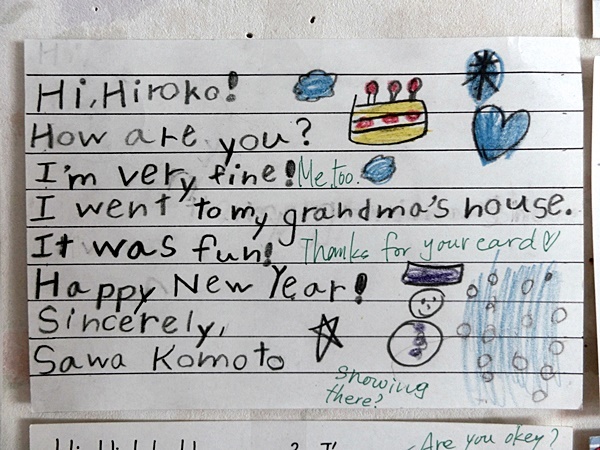 Hi, Hiroko!
How are you?
I'm very fine! Me, too.
I went to my grandma's house.
It was fun! Thanks for your card♡
Happy New Year!
Sincerely,
Sawa Komoto
snowing
there?
Are you okey?